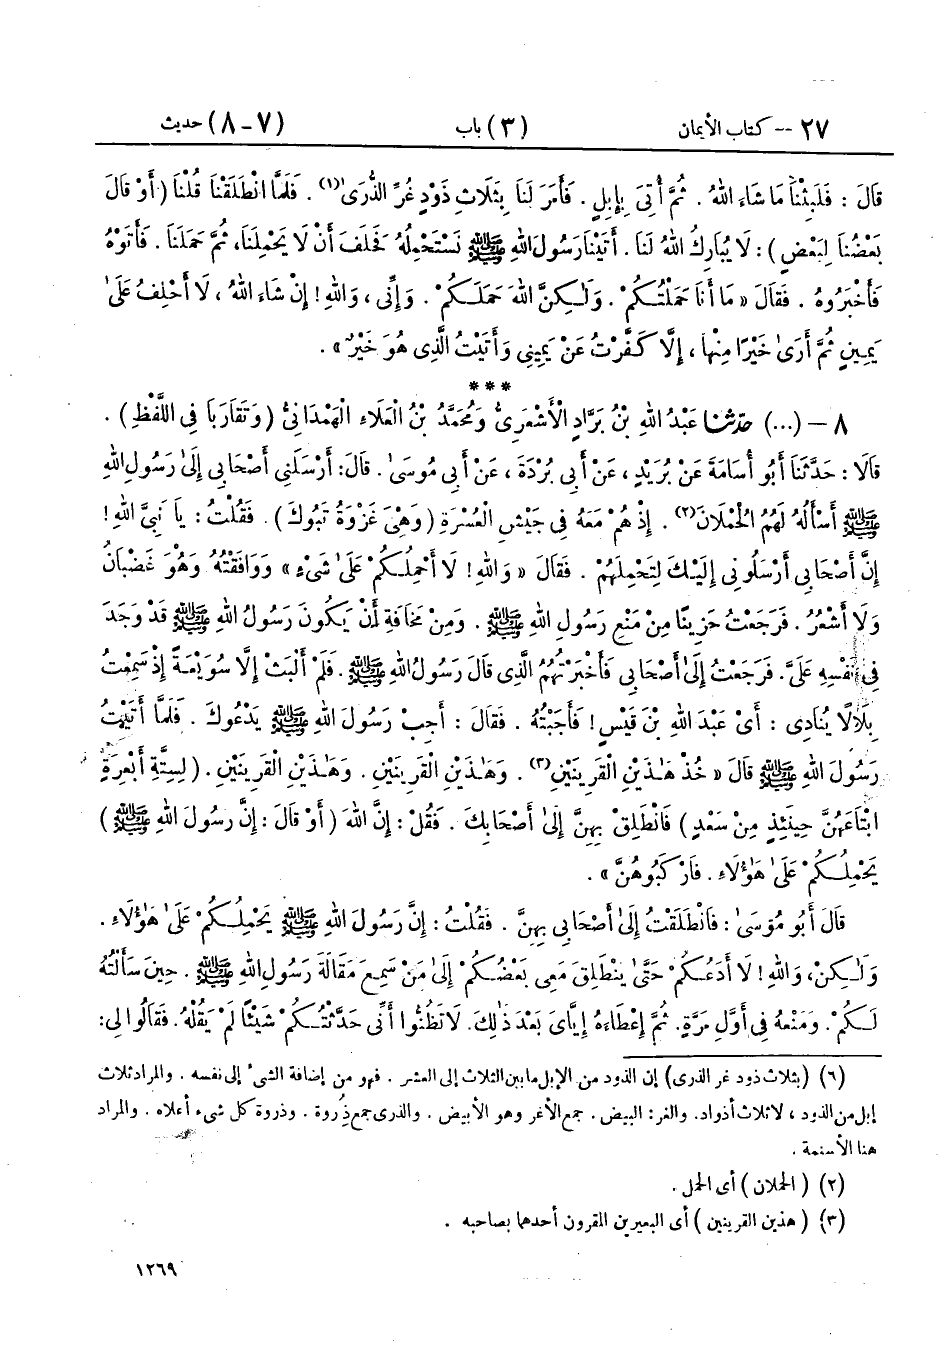 ٢٧ -- كتاب الأيمان (٣) باب (٧-٨) حديث
قَالَ : فَلَبِثْنَا مَا شَاءَ اللهُ . ثُمَّ أُتِىَ بِإِبِلٍ . فَأَمَرَ لَنَا بِثَلَاثِ ذَوْدٍ غُرِّ الذُّرَىٰ(١) . فَلَمَّا انْطَلَقْنَا قُلْنَا (أَوْ قَالَ
بَعْضُنَا لِبَعْضٍ ) : لَا يُبَارِكُ اللهُ لَنَا . أَتَيْنَا رَسُولَ اللهِ ﷺ نَسْتَحْمِلُهُ فَحَلَفَ أَنْ لَا يَحْمِلَنَا، ثُمَّ حَمَلَنَا . فَأَتَوْهُ
فَأَخْبَرُوهُ . فَقَالَ « مَا أَنَا حَمَلْتُكُمْ . وَلَٰكِنَّ اللهَ حَمَلَكُمْ . وَإِنِّى ، وَاللهِ ! إِنْ شَاءَ اللهُ ، لَا أَحْلِفُ عَلَىٰ
يَمِينٍ ثُمَّ أَرَىٰ خَيْرًا مِنْهَا ، إِلَّا كَفَّرْتُ عَنْ يَمِينِى وَأَتَيْتُ الَّذِى هُوَ خَيْرٌ » .
***
٨ – (...) حَدَّثَنَا عَبْدُ اللهِ بْنُ بَرَّادٍ الْأَشْعَرِىُّ وَمُحَمَّدُ بْنُ الْعَلَاءِ الْهَمْدَانِىُّ (وَتَقَارَبَا فِى اللَّفْظِ ) .
قَالَا : حَدَّثَنَا أَبُو أُسَامَةَ عَنْ بُرَيْدٍ ، عَنْ أَبِى بُرْدَةَ ، عَنْ أَبِى مُوسَىٰ . قَالَ: أَرْسَلَنِى أَصْحَابِى إِلَىٰ رَسُولِ اللهِ
ﷺ أَسْأَلُهُ لَهُمُ الْحُمْلَانَ(٢) . إِذْ هُمْ مَعَهُ فِى جَيْشِ الْعُسْرَةِ (وَهِىَ غَزْوَةُ تَبُوكَ) . فَقُلْتُ : يَا نَبِىَّ اللهِ !
إِنَّ أَصْحَابِى أَرْسَلُونِى إِلَيْكَ لِتَحْمِلَهُمْ . فَقَالَ « وَاللهِ ! لَا أَحْمِلُكُمْ عَلَىٰ شَىْءٍ » وَوَافَقْتُهُ وَهُوَ غَضْبَانُ
وَلَا أَشْعُرُ . فَرَجَعْتُ حَزِينًا مِنْ مَنْعِ رَسُولِ اللهِ ﷺ . وَمِنْ مَخَافَةِ أَنْ يَكُونَ رَسُولُ اللهِ ﷺ قَدْ وَجَدَ
فِى نَفْسِهِ عَلَىَّ . فَرَجَعْتُ إِلَىٰ أَصْحَابِى فَأَخْبَرْتُهُمُ الَّذِى قَالَ رَسُولُ اللهِ ﷺ . فَلَمْ أَلْبَثْ إِلَّا سُوَيْعَةً إِذْ سَمِعْتُ
بِلَالًا يُنَادِى : أَىْ عَبْدَ اللهِ بْنَ قَيْسٍ ! فَأَجَبْتُهُ . فَقَالَ : أَجِبْ رَسُولَ اللهِ ﷺ يَدْعُوكَ . فَلَمَّا أَتَيْتُ
رَسُولَ اللهِ ﷺ قَالَ « خُذْ هَٰذَيْنِ الْقَرِينَيْنِ(٣) . وَهَٰذَيْنِ الْقَرِينَيْنِ . وَهَٰذَيْنِ الْقَرِينَيْنِ . (لِسِتَّةِ أَبْعِرَةٍ
ابْتَاعَهُنَّ حِينَئِذٍ مِنْ سَعْدٍ ) فَانْطَلِقْ بِهِنَّ إِلَىٰ أَصْحَابِكَ . فَقُلْ : إِنَّ اللهَ ( أَوْ قَالَ : إِنَّ رَسُولَ اللهِ ﷺ )
يَحْمِلُكُمْ عَلَىٰ هَٰؤُلَاءِ . فَارْكَبُوهُنَّ » .
قَالَ أَبُو مُوسَىٰ : فَانْطَلَقْتُ إِلَىٰ أَصْحَابِى بِهِنَّ . فَقُلْتُ : إِنَّ رَسُولَ اللهِ ﷺ يَحْمِلُكُمْ عَلَىٰ هَٰؤُلَاءِ .
وَلَٰكِنْ، وَاللهِ ! لَا أَدَعُكُمْ حَتَّىٰ يَنْطَلِقَ مَعِى بَعْضُكُمْ إِلَىٰ مَنْ سَمِعَ مَقَالَةَ رَسُولِ اللهِ ﷺ . حِينَ سَأَلْتُهُ
لَكُمْ . وَمَنْعَهُ فِى أَوَّلِ مَرَّةٍ . ثُمَّ إِعْطَاءَهُ إِيَّاىَ بَعْدَ ذَٰلِكَ . لَا تَظُنُّوا أَنِّى حَدَّثْتُكُمْ شَيْئًا لَمْ يَقُلْهُ . فَقَالُوا لِى :
(٦) (بثلاث ذود غر الذرى) إن الذود من الإبل ما بين الثلاث إلى العشر . فهو من إضافة الشىء إلى نفسه . والمراد ثلاث
إبل من الذود ، لا ثلاث أذواد . والغر : البيض . جمع الأغر وهو الأبيض . والذرى جمع ذُروة . وذروة كل شىء أعلاه . والمراد
هنا الأسنمة .
(٢) (الحملان ) أى الحمل .
(٣) ( هذين القرينين ) أى البعيرين المقرون أحدهما بصاحبه .
١٢٦٩